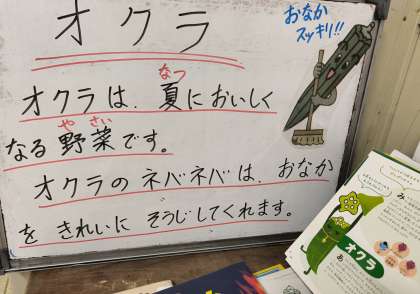 オクラ
おなか
スッキリ!!
オクラは、夏においしく
なつ
なる野菜です。
やさい
オクラのネバネバは、おなか
をきれいにそうじしてくれます。
オクラ